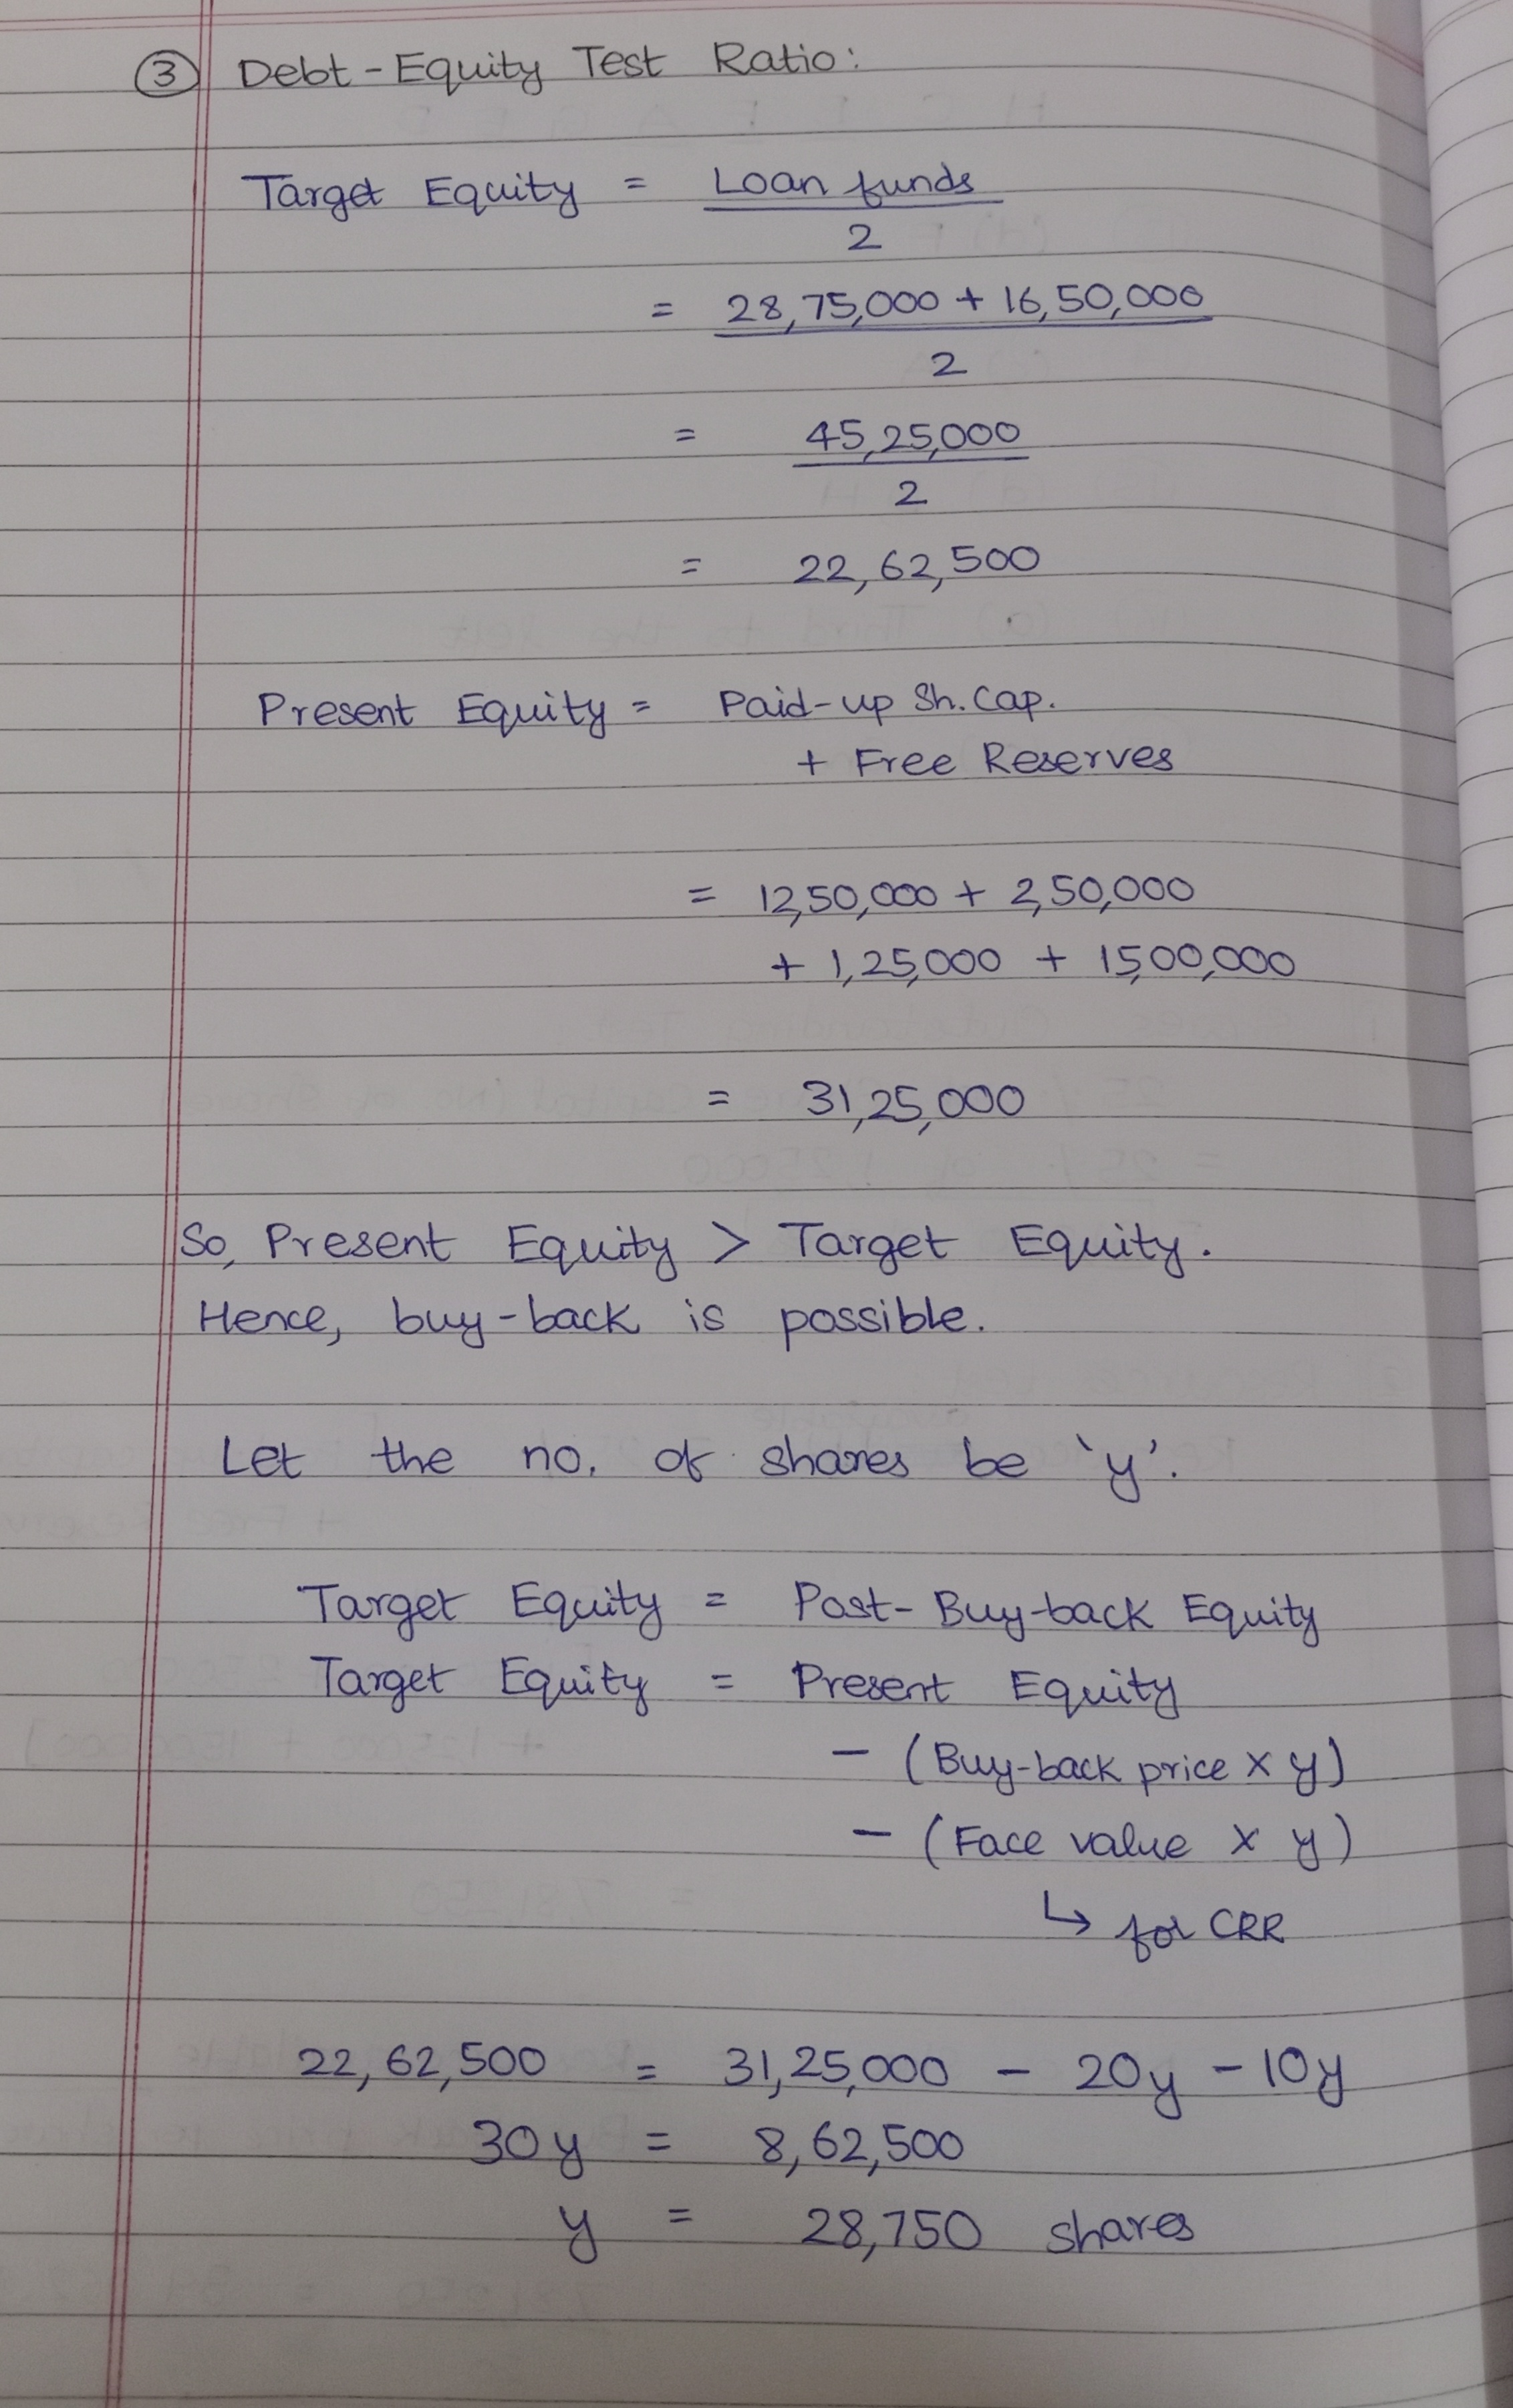 ③ Debt-Equity Test Ratio:
Target Equity = Loan funds
2
= 28,75,000 + 16,50,000
2
= 45,25,000
2
= 22,62,500
Present Equity = Paid-up Sh. Cap.
+ Free Reserves
= 12,50,000 + 2,50,000
+ 1,25,000 + 15,00,000
= 31,25,000
So, Present Equity > Target Equity.
Hence, buy-back is possible.
Let the no. of shares be 'y'.
Target Equity = Post-Buy-back Equity
Target Equity = Present Equity
- (Buy-back price x y)
- (Face value x y)
↳ for CRR
22,62,500 = 31,25,000 - 20y - 10y
30y = 8,62,500
y = 28,750 shares